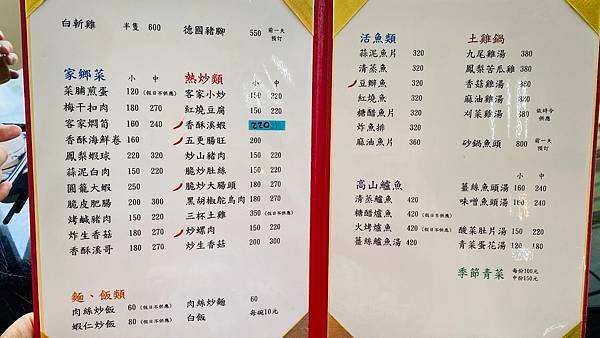 白斬雞 半隻 600
德國豬腳 550 前一天預訂
家鄉菜 小 中
菜脯煎蛋 120 (假日不供應)
梅干扣肉 180 270
客家燜筍 160 240
香酥海鮮卷 160
鳳梨蝦球 220 320
蒜泥白肉 150 220
圓籠大蝦 250
脆皮肥腸 200 300
烤鹹豬肉 150 220
炸生香菇 180 270
香酥溪哥 180 270
熱炒類 小 中
客家小炒 150 220
紅燒豆腐 150 220
香酥溪蝦 220
五更腸旺 200 300
炒山豬肉 150 220
脆炒肚絲 150 220
脆炒大腸頭 180 270
黑胡椒鴕鳥肉 180 270
三杯土雞 350 (假日不供應)
炒螺肉 150 220
炒生香菇 200 300
麵、飯類
肉絲炒飯 60 (假日不供應)
蝦仁炒飯 80 (假日不供應)
肉絲炒麵 60
白飯 每碗10元
活魚類
蒜泥魚片 320
清蒸魚 320
豆瓣魚 320
紅燒魚 320
糖醋魚片 320
炸魚排 320
麻油魚片 360
高山鱸魚
清蒸鱸魚 420
糖醋鱸魚 420 (假日不供應)
火烤鱸魚 420 (假日不供應)
薑絲鱸魚湯 420
土雞鍋
九尾雞湯 380
鳳梨苦瓜雞 380
香菇雞湯 380
麻油雞湯 380
刈菜雞湯 380 依時令供應
砂鍋魚頭 800 前一天預訂
薑絲魚頭湯 160 240
味噌魚頭湯 160 240
酸菜肚片湯 150 220
青菜蛋花湯 120 180
季節青菜 每份100元
中份150元